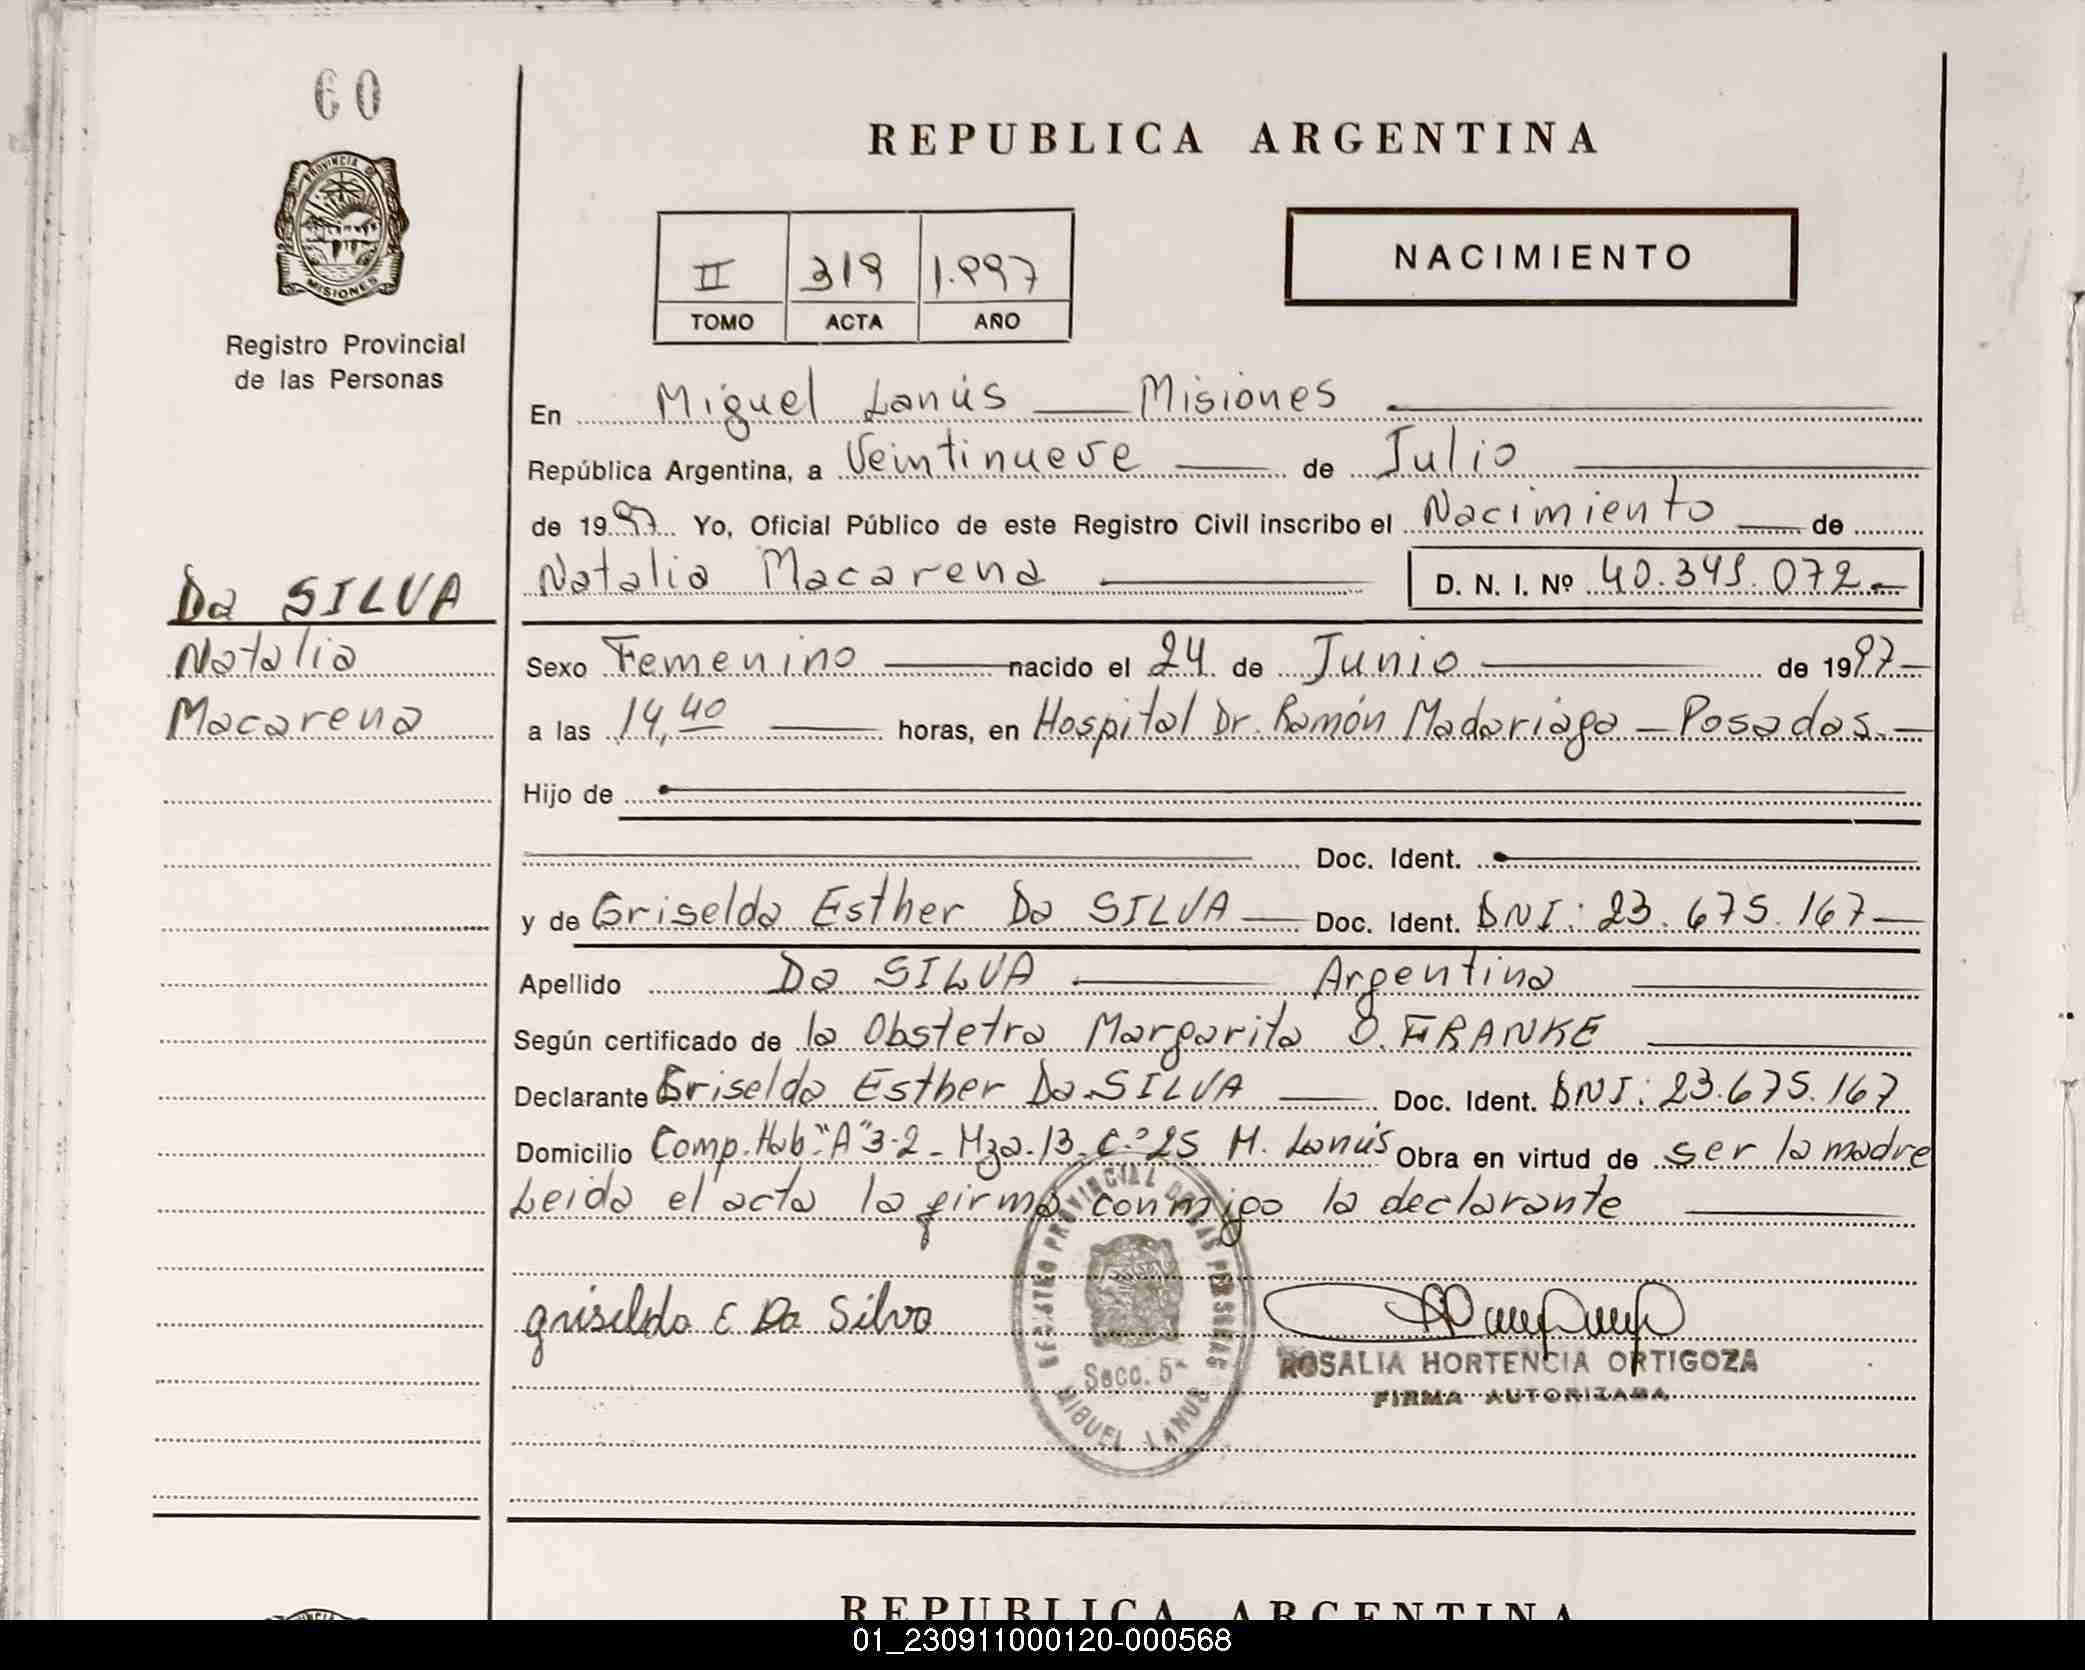 60
PROVINCIA DE
MISIONES
Registro Provincial
de las Personas
Da SILVA
Natalia
Macarena
REPUBLICA ARGENTINA
II 319 1.997
TOMO ACTA AÑO
NACIMIENTO
En Miguel Lanús Misiones
República Argentina, a Veintinueve de Julio
de 1997 Yo, Oficial Público de este Registro Civil inscribo el Nacimiento de
Natalia Macarena D. N. I. Nº 40.341.072
Sexo Femenino nacido el 24 de Junio de 1997
a las 14,40 horas, en Hospital Dr. Ramón Madariaga - Posadas.
Hijo de
Doc. Ident.
y de Griselda Esther Da SILVA Doc. Ident. DNI: 23.675.167
Apellido Da SILVA Argentina
Según certificado de la Obstetra Margarita O. FRANKE
Declarante Griselda Esther Da SILVA Doc. Ident. DNI: 23.675.167
Domicilio Comp. Hab. "A" 3-2 - Mza. 13 - C.º 25 M. Lanús Obra en virtud de ser la madre
Leida el acta la firma conmigo la declarante
griselda E Da Silva
REGISTRO PROVINCIAL DE LAS PERSONAS
Secc. 5ª
MIGUEL LANUS
ROSALIA HORTENCIA ORTIGOZA
FIRMA AUTORIZADA
REPUBLICA ARGENTINA
01_230911000120-000568